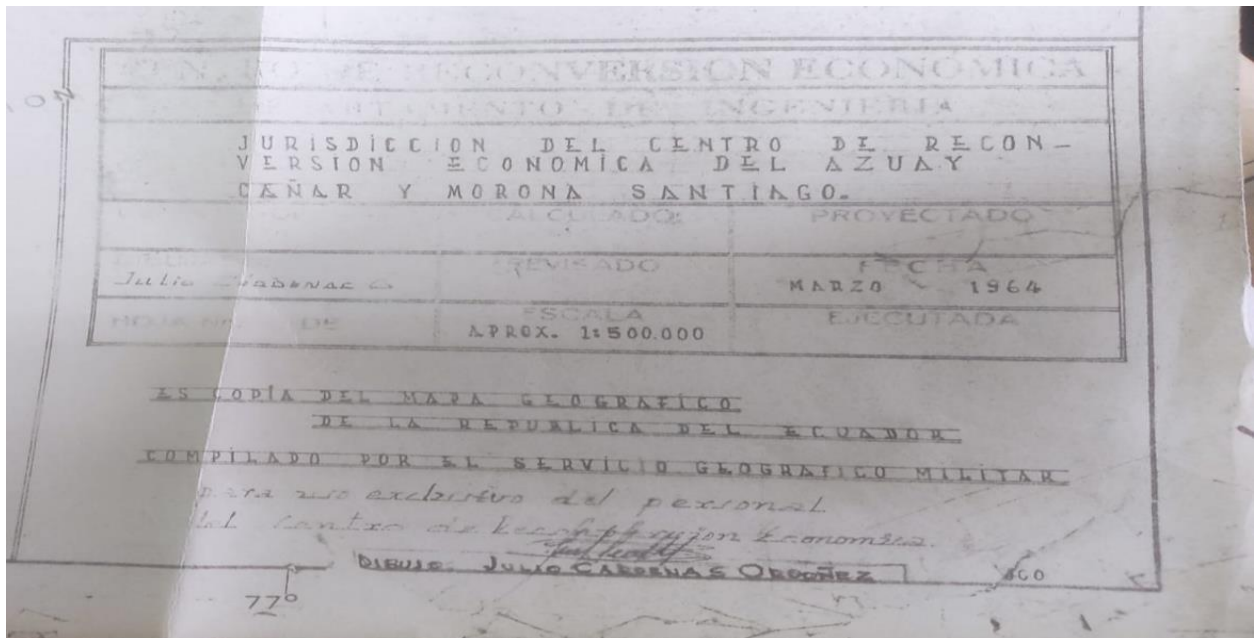 RECONVERSION ECONOMICA
DE INGENIERIA
JURISDICCION DEL CENTRO DE RECON-
VERSION ECONOMICA DEL AZUAY
CAÑAR Y MORONA SANTIAGO.
CALCULADO: PROYECTADO
REVISADO FECHA
Julio MARZO - 1964
HOJA No. DE ESCALA EJECUTADA
APROX. 1:500.000
ES COPIA DEL MAPA GEOGRAFICO
DE LA REPUBLICA DEL ECUADOR
COMPILADO POR EL SERVICIO GEOGRAFICO MILITAR
para uso exclusivo del personal
del Centro de Economica.
DIBUJO. JULIO CARDENAS ORDOÑEZ
77°